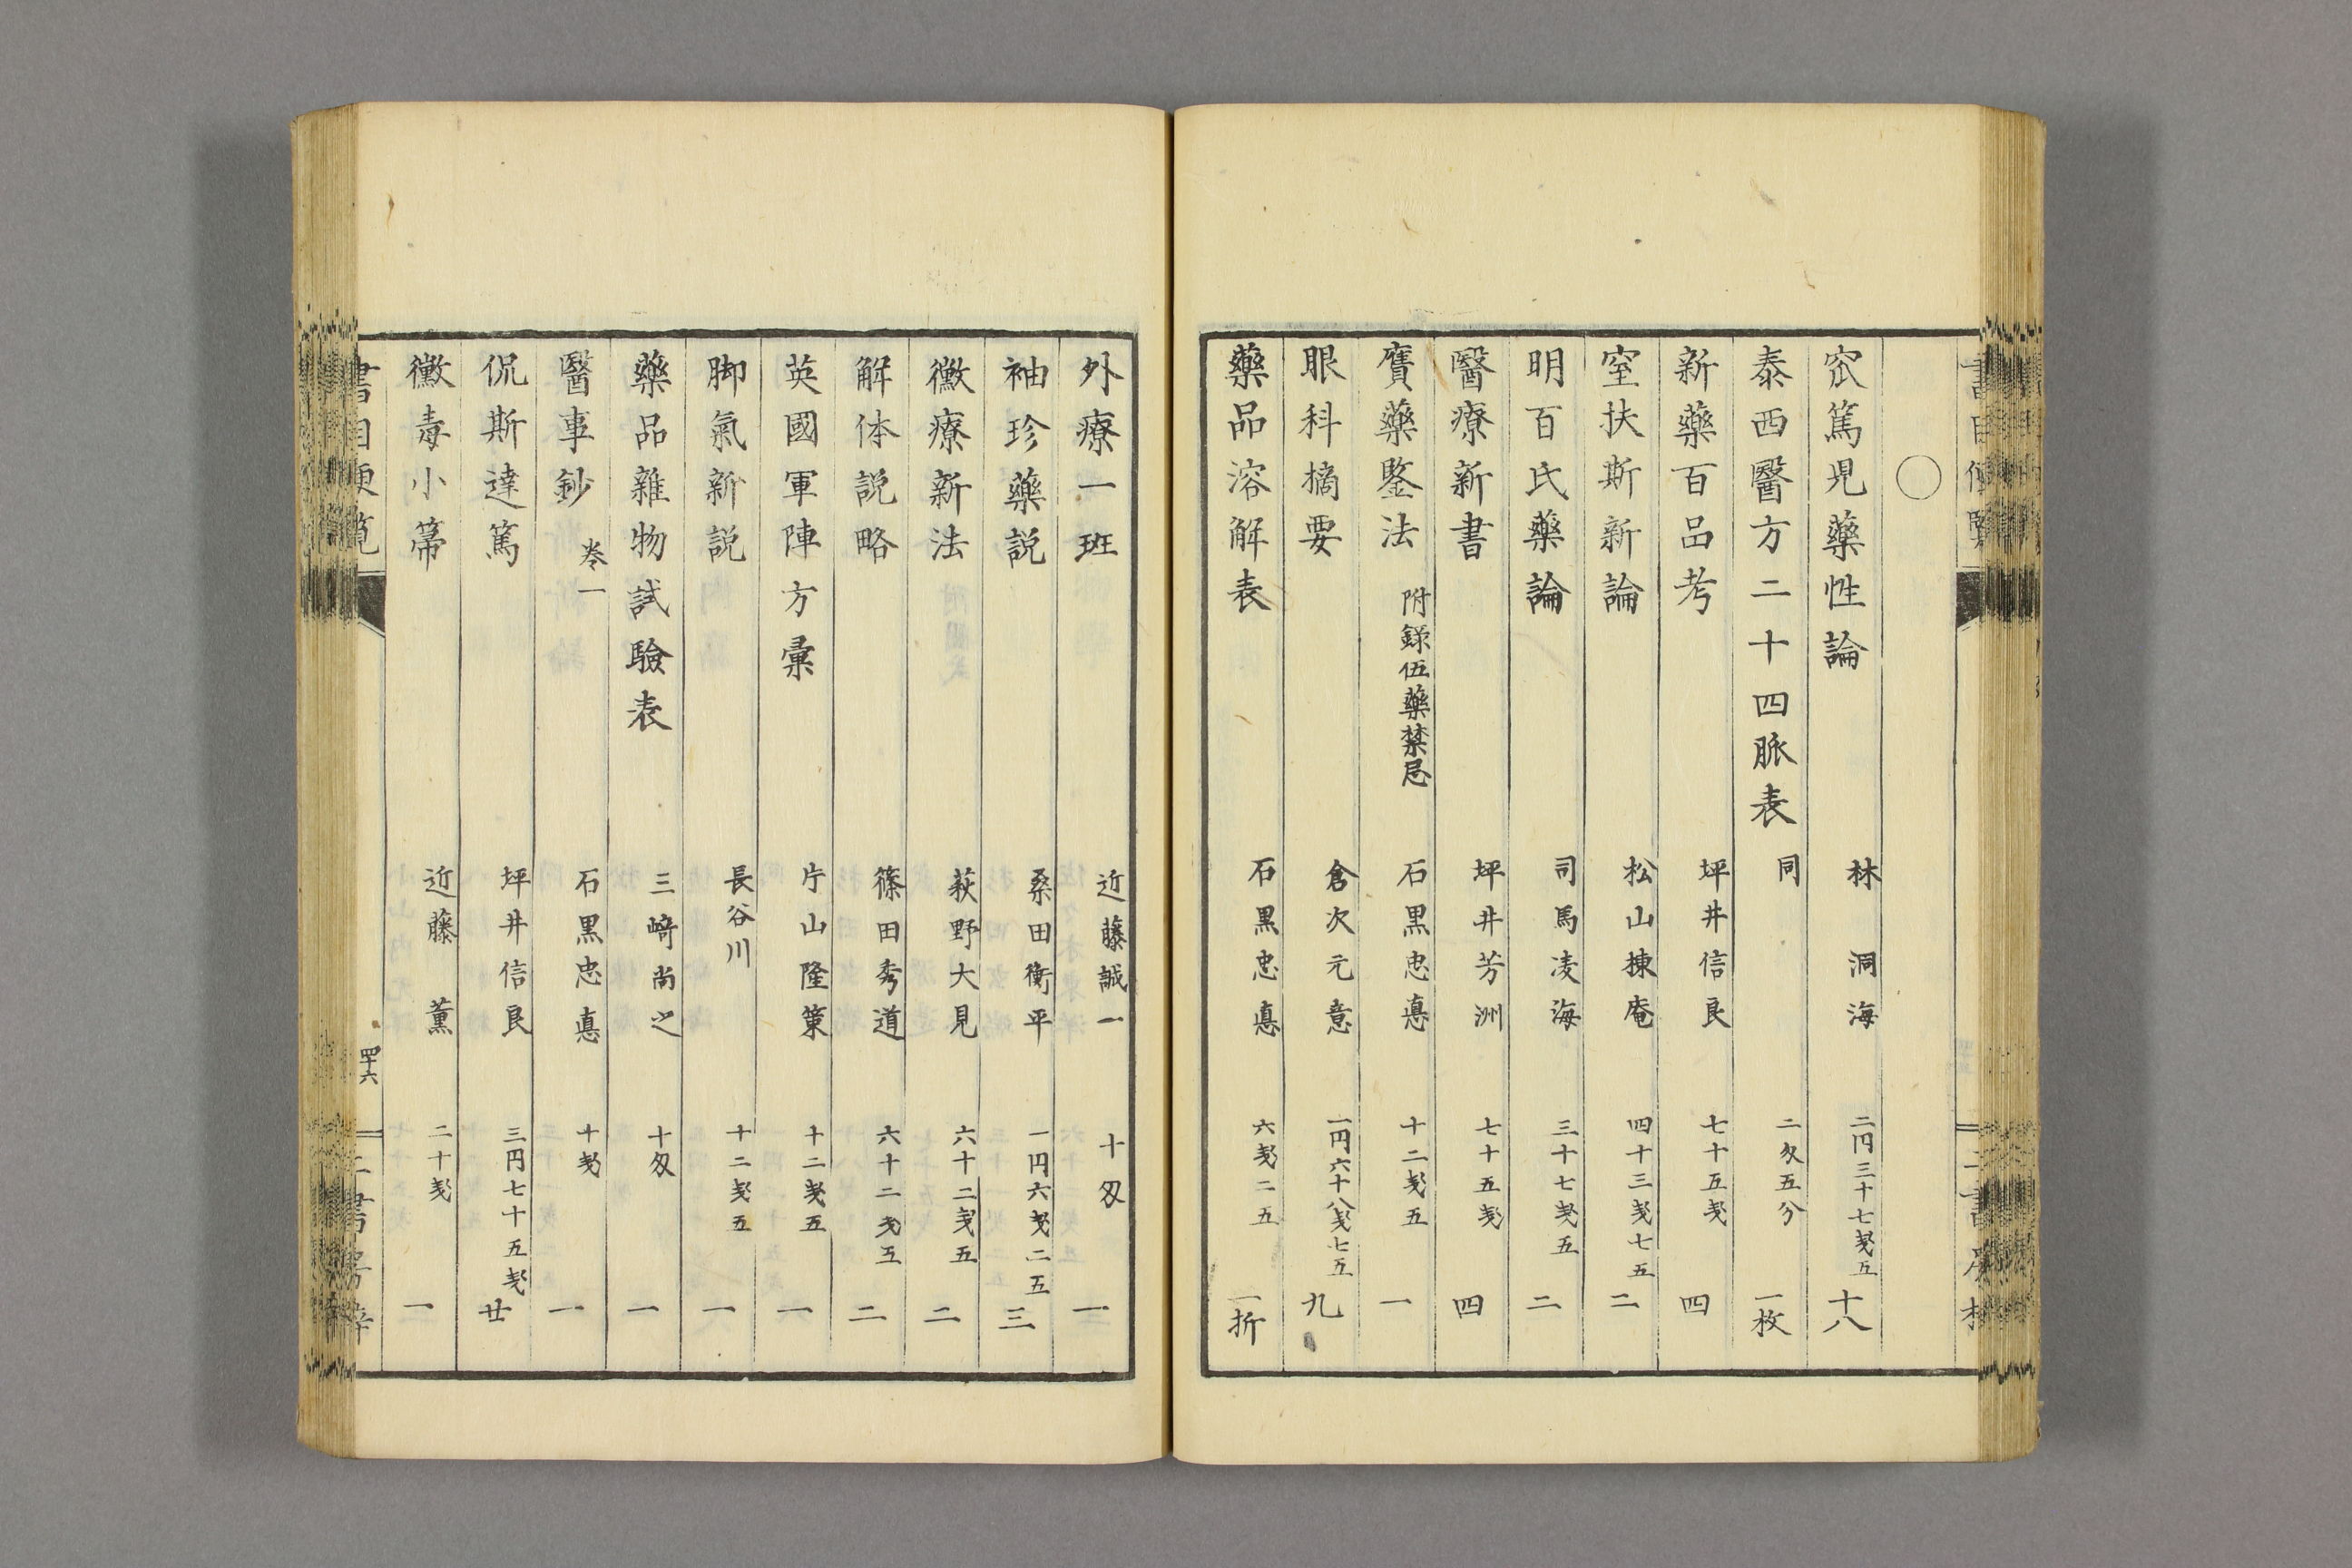 ○
窊篤児藥性論 林 洞海 二円三十七戔五 十八
泰西醫方二十四脈表 同 二匁五分 一枚
新藥百品考 坪井信良 七十五戔 四
窒扶斯新論 松山棟庵 四十三戔七五 二
明百氏藥論 司馬凌海 三十七戔五 二
醫療新書 坪井芳洲 七十五戔 四
贋藥鑒法 附録伍藥禁忌 石黒忠悳 十二戔五 一
眼科摘要 倉次元意 一円六十八戔七五 九
藥品溶解表 石黒忠悳 六戔二五 一折
外療一班 近藤誠一 十匁 一
袖珍藥説 桑田衡平 一円六戔二五 三
黴療新法 萩野大見 六十二戔五 二
解体説略 篠田秀道 六十二戔五 二
英國軍陣方彙 片山隆策 十二戔五 一
脚氣新説 長谷川 十二戔五 一
藥品雜物試驗表 三﨑尚之 十匁 一
醫事鈔 巻一 石黒忠悳 十戔 一
侃斯達篤 坪井信良 三円七十五戔 廿
黴毒小箒 近藤 薫 二十戔 一
書目便覧 四十六